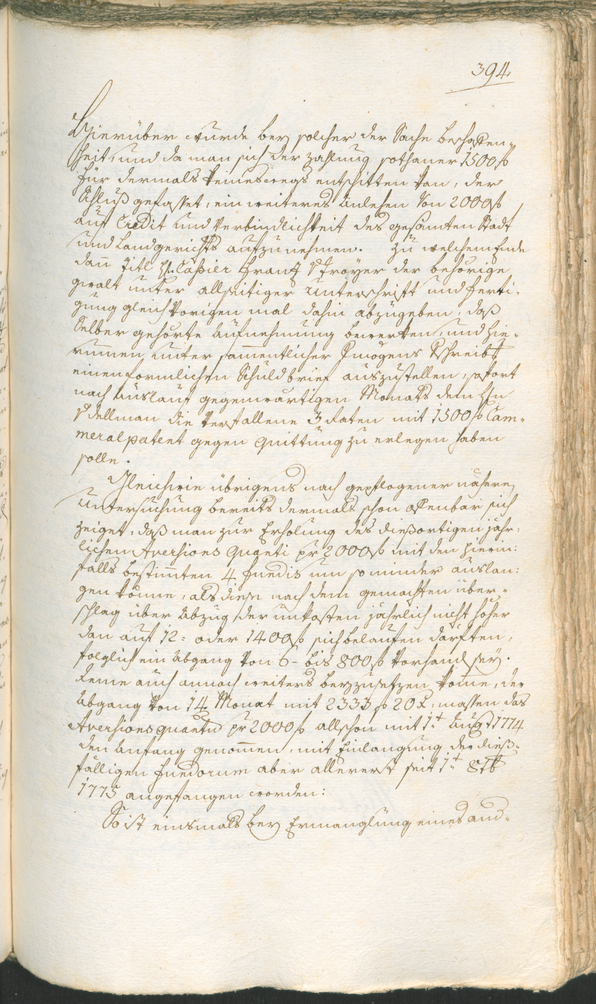 394
Hierüber wurde bey solcher der Sache beschaffen-
heit, und da man sich der zahlung sothaner 1500 f
für dermals keineswegs entschitten kan, der
Schluß gefasset, ein weiteres Anlehen von 2000 f
auf Credit und Verbindlichkeit des gesamten Stadt
und Landgerichts aufzunehmen. Zu welchem Ende
dan Titl H: Cassier Frantz v Troyer der behörige
gwalt unter allseitiger Unterschrift und Ferti-
gung gleich vorigen mal dahin abzugeben, daß
Selber gehörte Aufnehmung bewerken, und hie-
rumen unter sammentlicher Innwohners Schreibt
einen formlichen Schuldbrief auszustellen, sofort
nach Auslauf gegenwärtigen Monats dem Hn
v Söllman die verfallene 3 Raten mit 1500 f Cam-
meralpatent gegen Quittung zu erlegen haben
solle.
Gleichwie übrigens nach gepflogener nähere
Untersuchung bereits dermals schon offenbar sich
zeiget, daß man zur Erholung des diesortigen jähr-
lichen Aversions Quanti pr 2000 f mit den hierin-
falls bestimten 4 Fundis um so minder auslan-
gen könne, als diese nach dem gemachten über-
schlag über Abzug der unkosten jährlich nicht höher
dan auf 12: oder 1400 f sich belaufen dürften,
folglich ein Abgang von 6- bis 800 f vorhand. sey.
deme auch annoch weiters beyzusetzen kome, der
Abgang von 14 Monat mit 2333 f 20 x, massen das
Aversionsquantum pr 2000 f allschon mit 1t Aug 1774
den Anfang genommen, mit Einlangung der dieß-
fälligen Fundorum aber allererst seit 1t 8tb
1775 angefangen worden:
So ist einsmals bey Ermanglung eines and-